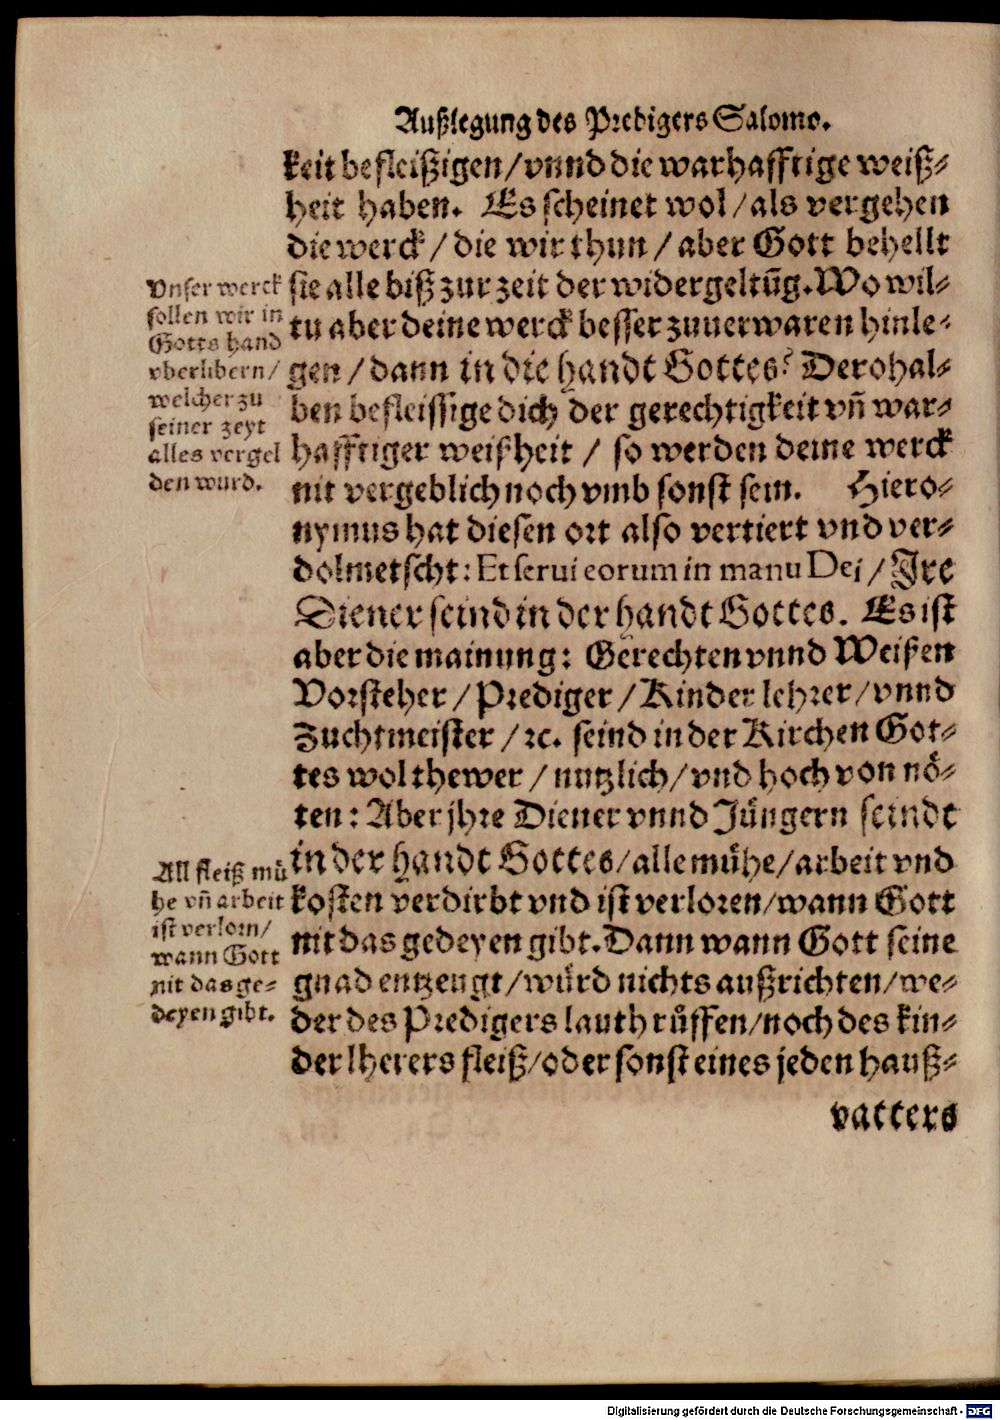 Außlegung des Predigers Salomo.
keit befleißigen/vnnd die warhafftige weiß-
heit haben. Es scheinet wol/als vergehen
die werck/die wir thun/aber Gott behellt
sie alle biß zur zeit der widergeltūg. Wo wil-
tu aber deine werck besser zuuerwaren hinle-
gen/dann in die handt Gottes? Derohal-
ben befleissige dich der gerechtigkeit vñ war-
hafftiger weißheit/so werden deine werck
nit vergeblich noch vmb sonst sein. Hiero-
nymus hat diesen ort also vertiert vnd ver-
dolmetscht: Et serui eorum in manu Dei/Ire
Diener seind in der handt Gottes. Es ist
aber die mainung: Gerechten vnnd Weißen
Vorsteher/Prediger/Kinder lehrer/vnnd
Zuchtmeister/ꝛc. seind in der Kirchen Got-
tes wol thewer/nutzlich/vnd hoch von nö-
ten: Aber jhre Diener vnnd Jüngern seindt
in der handt Gottes/alle mühe/arbeit vnd
kosten verdirbt vnd ist verloren/wann Gott
nit das gedeyen gibt. Dann wann Gott seine
gnad entzeugt/würd nichts außrichten/we-
der des Predigers lauth rüffen/noch des kin-
der lherers fleiß/oder sonst eines jeden hauß-
vatters
Vnser werck
sollen wir in
Gotts hand
vberlibern/
welcher zu
seiner zeyt
alles vergel
den wurd.
All fleiß mü
he vñ arbeit
ist verlorn/
wann Gott
nit das ge-
deyen gibt.
Digitalisierung gefördert durch die Deutsche Forschungsgemeinschaft - DFG